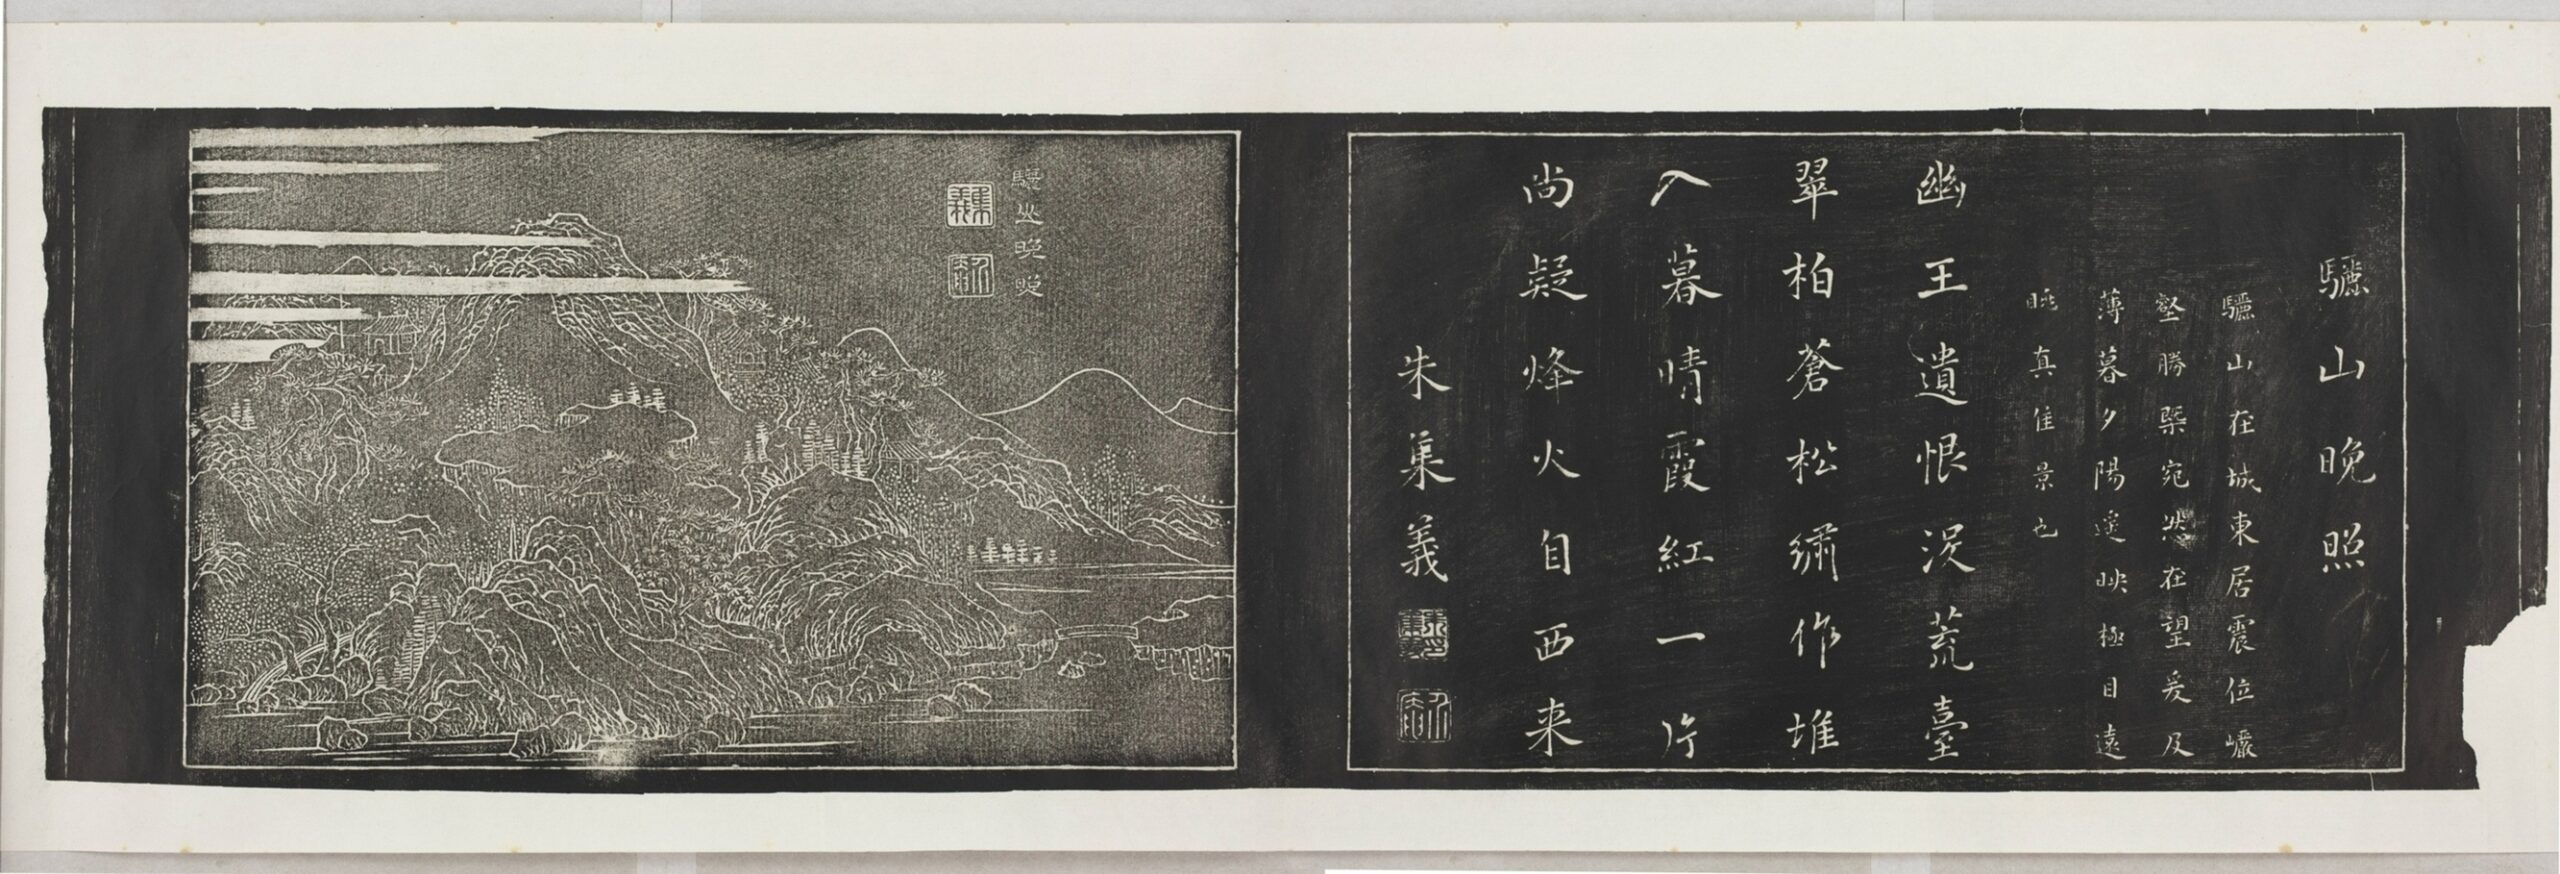 驪山晚照
驪山在城東居震位巖
壑勝槩宛然在望爰及
薄暮夕陽遙映極目遠
眺真佳景也
幽王遺恨沒荒臺
翠柏蒼松繡作堆
入暮晴霞紅一片
尚疑烽火自西来
朱集義
驪山晚照
集義